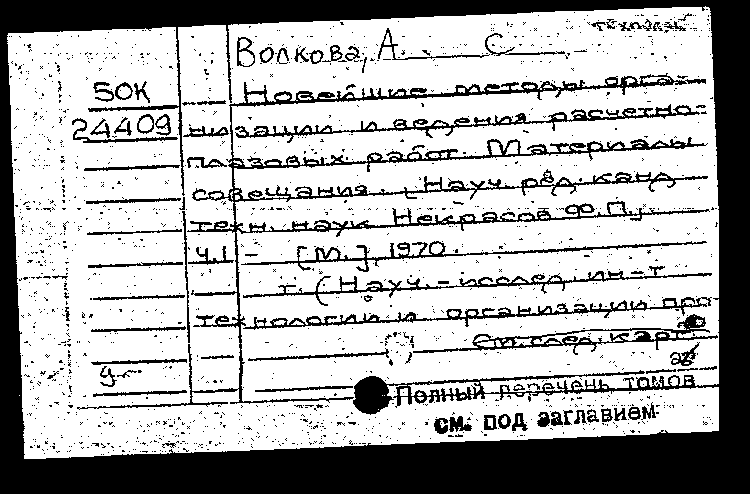 Волкова, А. С
50К
24409
Новейшие методы орга-
низации и ведения расчетно-
плазовых работ. Материалы
совещания. [Науч. ред. канд
техн. наук Некрасов Ф.П.]
Ч.1 - [М.], 1970.
т. (Науч.-исслед. ин-т
технологии и организации про
См. след. карт.
Полный перечень томов
см. под заглавием